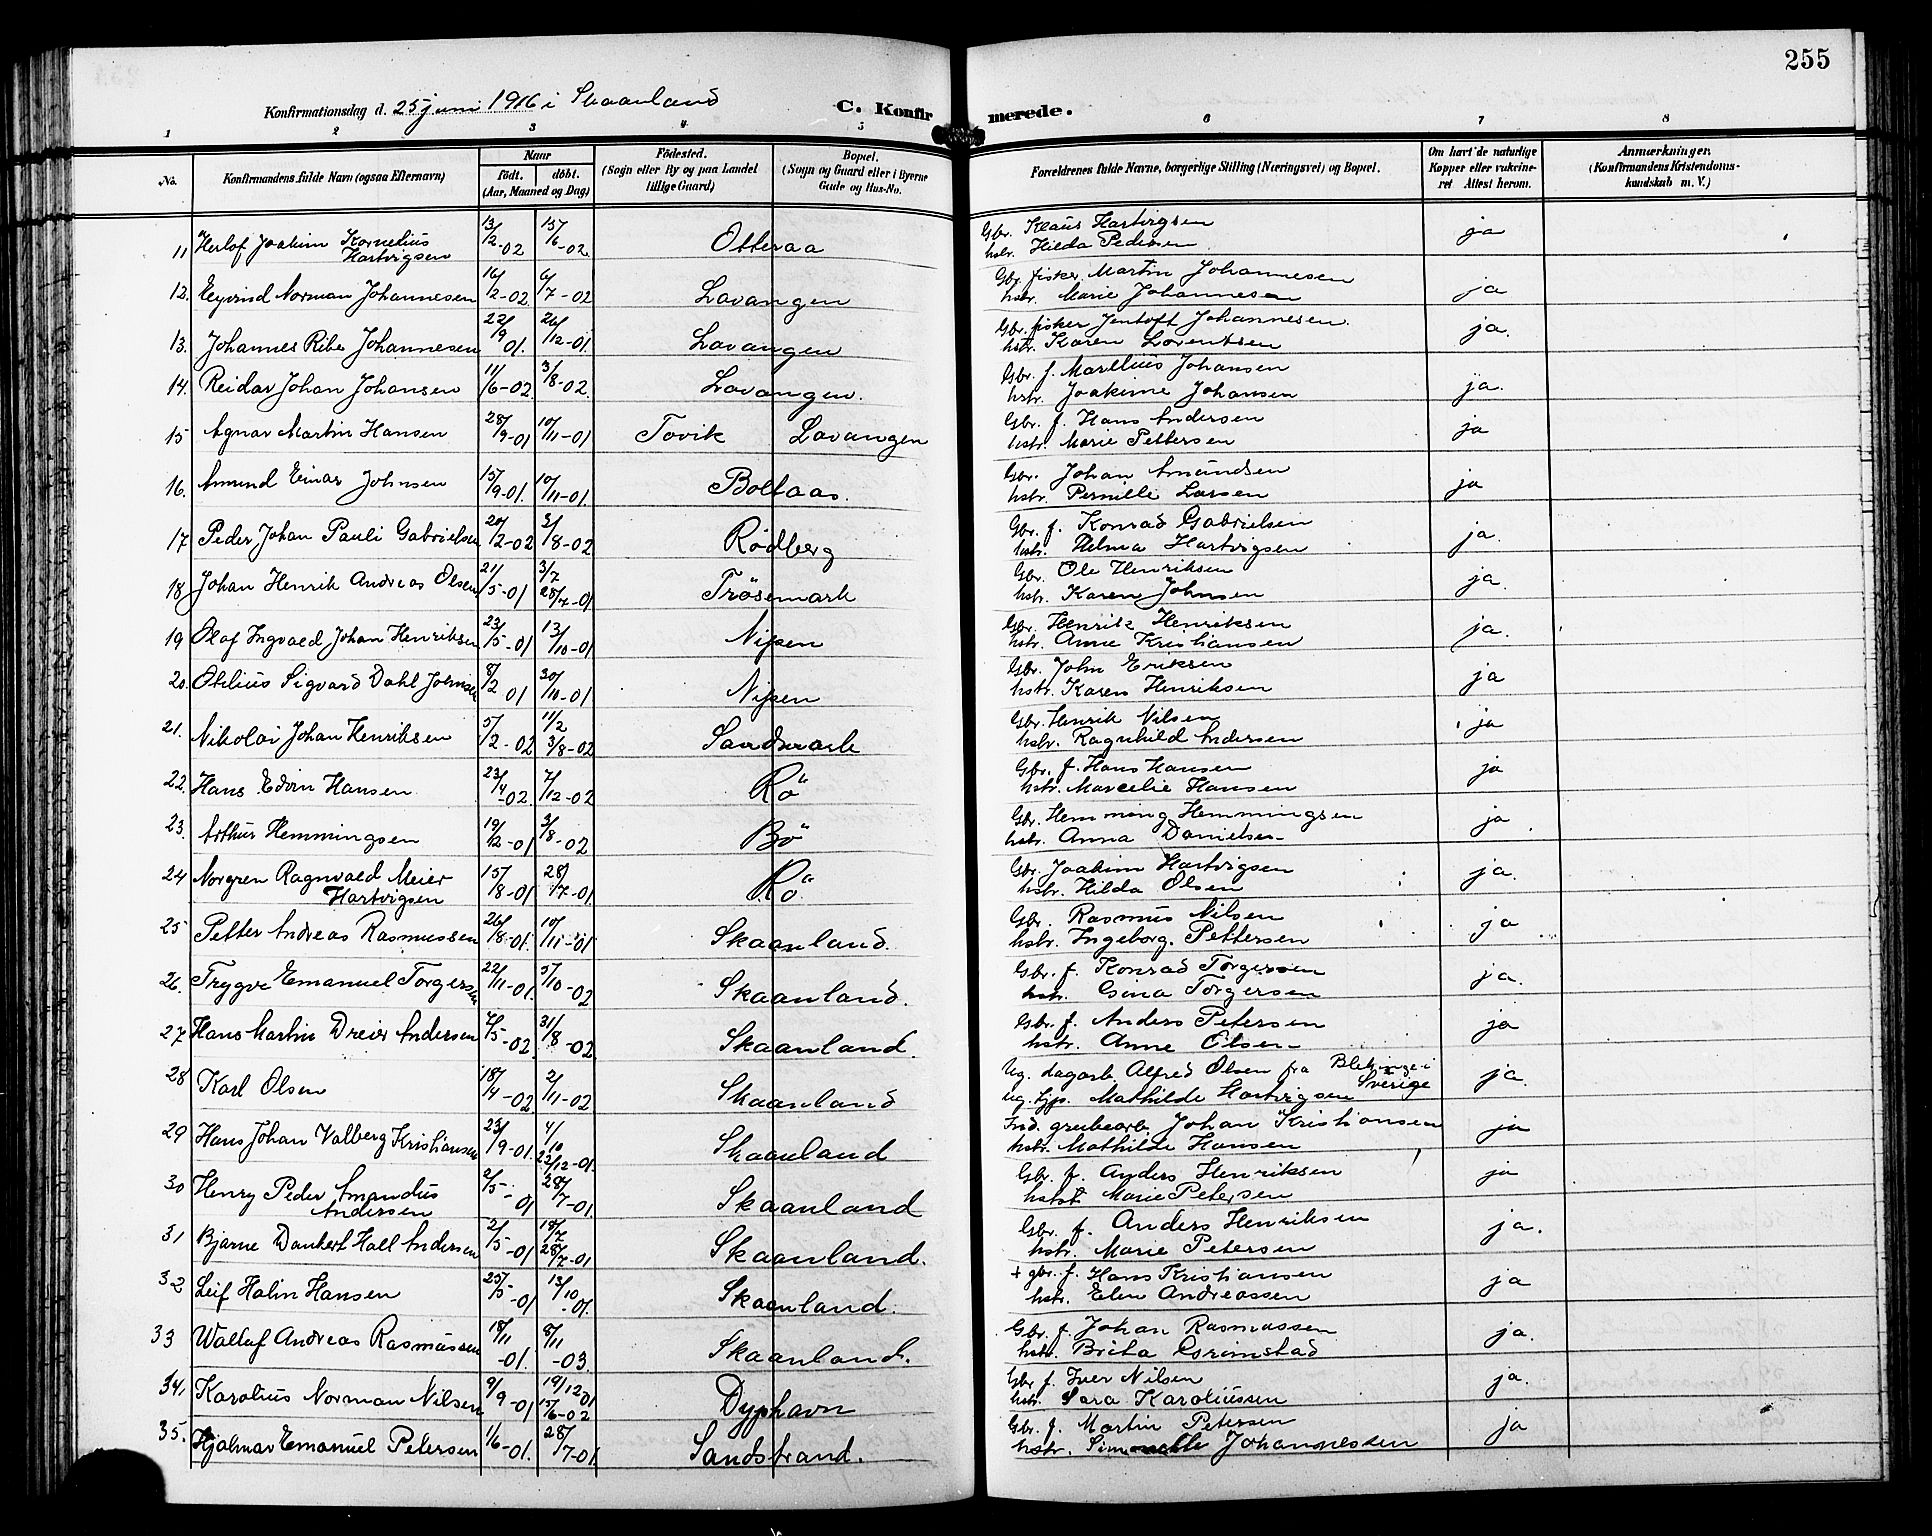 255
Konfirmationsdag d. 25 juni 1916 i Skaanland
C. Konfirmerede.
1 2 3 4 5 6 7 8
No.
Konfirmandens fulde Navn (ogsaa Efternavn)
Naar
født. døbt.
(Aar, Maaned og Dag)
Fødested.
(Sogn eller By og paa Landet
tillige Gaard)
Bopæl.
(Sogn og Gaard eller i Byerne
Gade og Hus-No.
Forældrenes fulde Navne, borgerlige Stilling (Næringsvei) og Bopæl.
Om havt de naturlige
Kopper eller vakcine-
ret Attest herom.
Anmærkninger.
(Konfirmandens Kristendoms-
kundskab m. V.)
11 Herlof Joakim Kornelius Hartvigsen 13/2-02 15/6-02 Otteraa Gbr. Klaus Hartvigsen ja
hstr. Hilda Pedersen
12. Eyvind Norman Johannesen 16/2-02 6/7-02 Lavangen Gbr. fisker Martin Johannesen ja
hstr. Marie Johannesen
13. Johannes Ribe Johannesen 22/9 01. 26/12-01. Lavangen Gbr. fisker Jentoft Johannesen. ja.
hstr. Karen Lorentsen
14. Reidar Johan Johansen 11/6-02 3/8-02. Lavangen. Gbr. f. Marelius Johansen ja.
hstr. Joakime Johansen
15 Agnar Martin Hansen 28/9-01 10/11-01 Tovik Lavangen Gbr. f. Hans Andersen ja
hstr. Marie Pettersen
16. Amund Einar Johnsen 15/9-01. 10/11-01. Boltaas. Gbr. Johan Amundsen ja
hstr. Pernille Larsen
17 Peder Johan Pauli Gabrielsen 20/2-02 3/8-02 Rødberg Gbr. f. Konrad Gabrielsen ja.
hstr. Helma Hartvigsen
18 Johan Henrik Andreas Olsen 21/5-01 3/7 28/7-01 Trøsemark Gbr. Ole Henriksen ja.
hstr. Karen Johnsen
19 Olaf Ingvald Johan Henriksen 23/5-01 13/10-01 Nipen Gbr. Henrik Henriksen ja.
hstr. Anne Kristiansen
20. Otelius Sigvard Dahl Johnsen 8/2 01 30/10-01 Nipen Gbr. John Eriksen ja
hstr. Karen Henriksen
21. Nikolai Johan Henriksen 5/2-02 11/2 3/8-02 Sandmark Gbr. Henrik Nilsen ja
hstr. Ragnhild Andersen
22. Hans Edvin Hansen 23/4-02. 7/12-02 Rø Gbr. f. Hans Hansen ja
hstr. Marcelie Hansen
23. Arthur Hemmingsen 19/12-01 3/8-02 Bø Gbr. Hemming Hemmingsen ja
hstr. Anna Danielsen
24 Norgren Ragnvald Meier Hartvigsen 15/8-01 28/7-01. Rø Gbr. Joakim Hartvigsen ja.
hstr. Hilda Olsen
25 Petter Andreas Rasmussen 26/8-01. 10/11-01 Skaanland. Gbr. Rasmus Nilsen ja
hstr. Ingeborg Pettersen
26. Trygve Emanuel Torgersen 22/11-01. 5/10-02 Skaanland. Gbr. f. Konrad Torgersen ja.
hstr. Gina Torgersen
27 Hans Martin Dreier Andersen 7/5-02. 31/8-02 Skaanland. Gbr. f. Anders Petersen ja
hstr. Anne Olsen
28 Karl Olsen 18/4-02. 2/11-02 Skaanland Ug. dagarb. Alfred Olsen fra Blekinge i Sverige ja.
Ug. tjp. Mathilde Hartvigsen
29 Hans Johan Valberg Kristiansen 23/9-01. 4/10 22/12-01. Skaanland Ind. grubearb. Johan Kristiansen ja
hstr. Mathilde Hansen
30 Henry Peder Amandus Andersen 2/5-01 28/7-01. Skaanland Gbr. f. Anders Henriksen ja
hstr. Marie Petersen
31 Bjarne Dankert Hall Andersen 2/5-01 18/7 28/7-01 Skaanland. Gbr. f. Anders Henriksen ja.
hstr. Marie Petersen
32 Leif Halm Hansen 25/5-01 13/10-01. Skaanland. + gbr. f. Hans Kristiansen ja
hstr. Elen Andreassen
33 Wallaf Andreas Rasmussen 18/11-01. 8/11-03. Skaanland. Gbr. f. Johan Rasmussen ja.
hstr. Brita Grimstad
34. Karolius Norman Nilsen 9/9-01 19/12 01 15/6-02 Dyphavn Gbr. f. Iver Nilsen ja.
hstr. Sara Karoliussen
35. Hjalmar Emanuel Petersen 1/6-01. 28/7-01. Sandstrand. Gbr. f. Martin Petersen ja
hstr. Johannessen